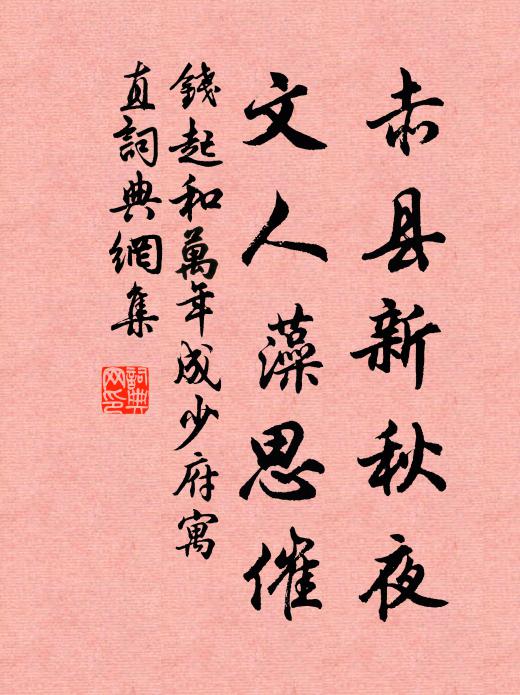 赤县新秋夜
文人藻思催
錢起和萬年成少府寓
直詞典網集
詞典网印